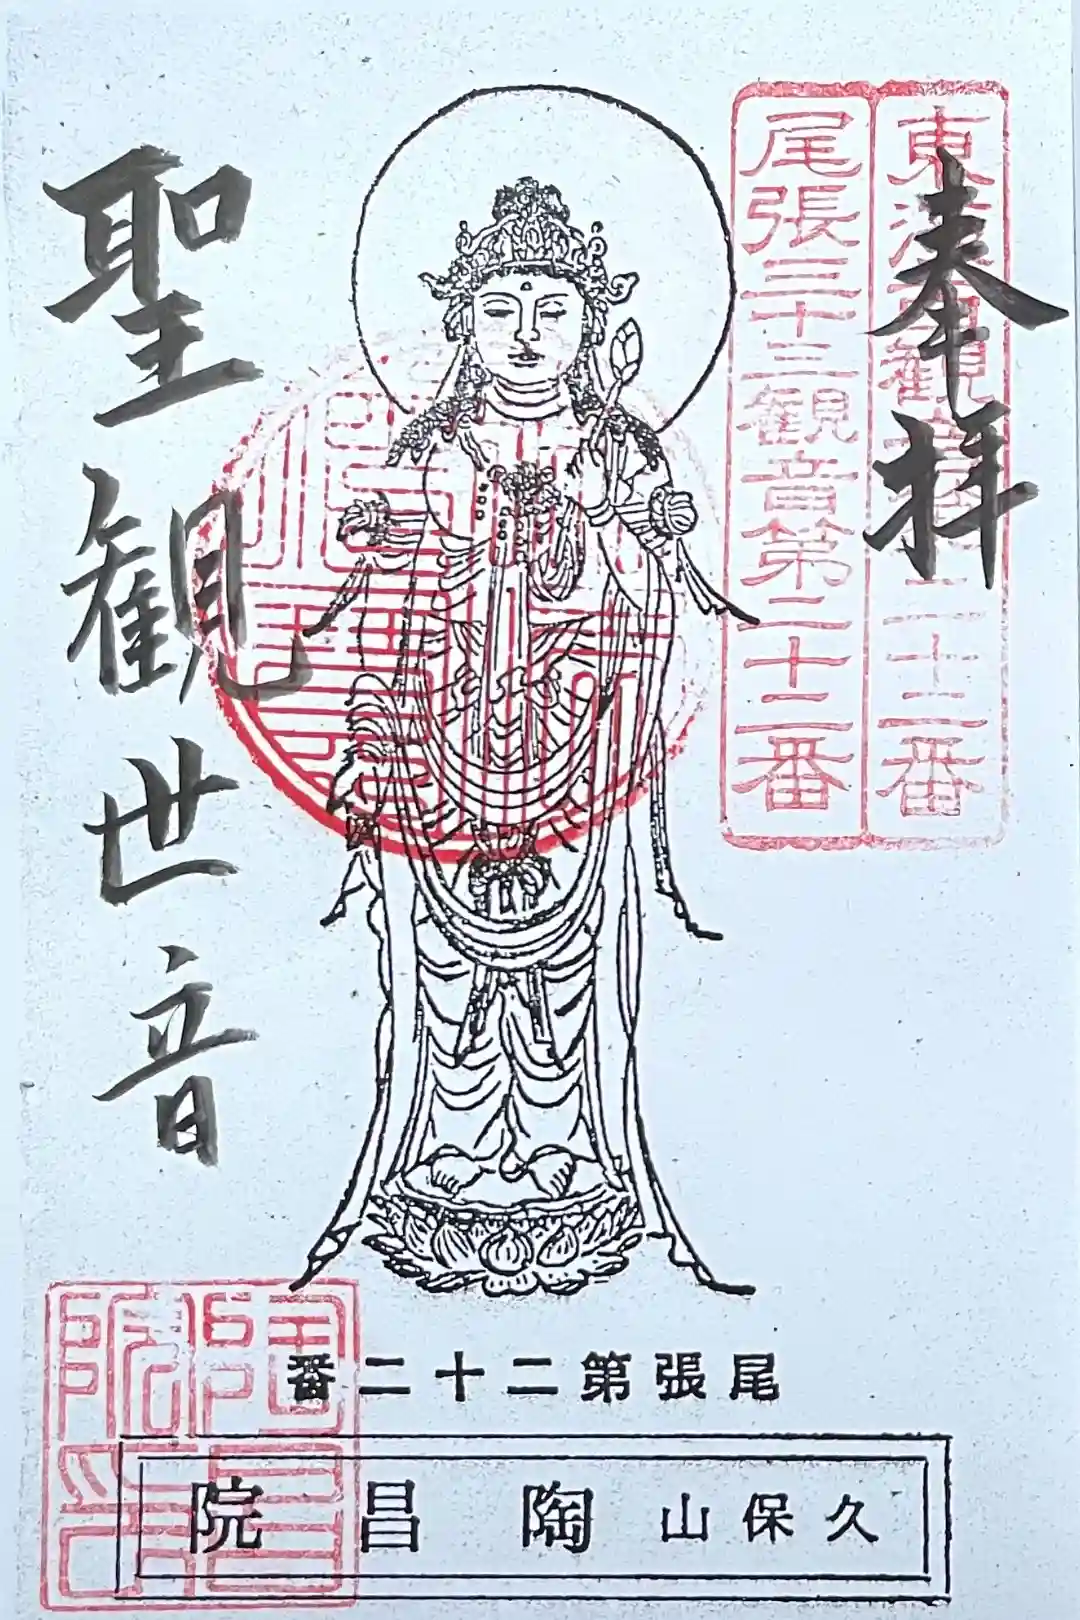 奉拝
東海 観音 二十二番
尾張三十三観音第二十二番
聖観世音
尾張第二十二番
久保山 陶昌院
陶昌院印